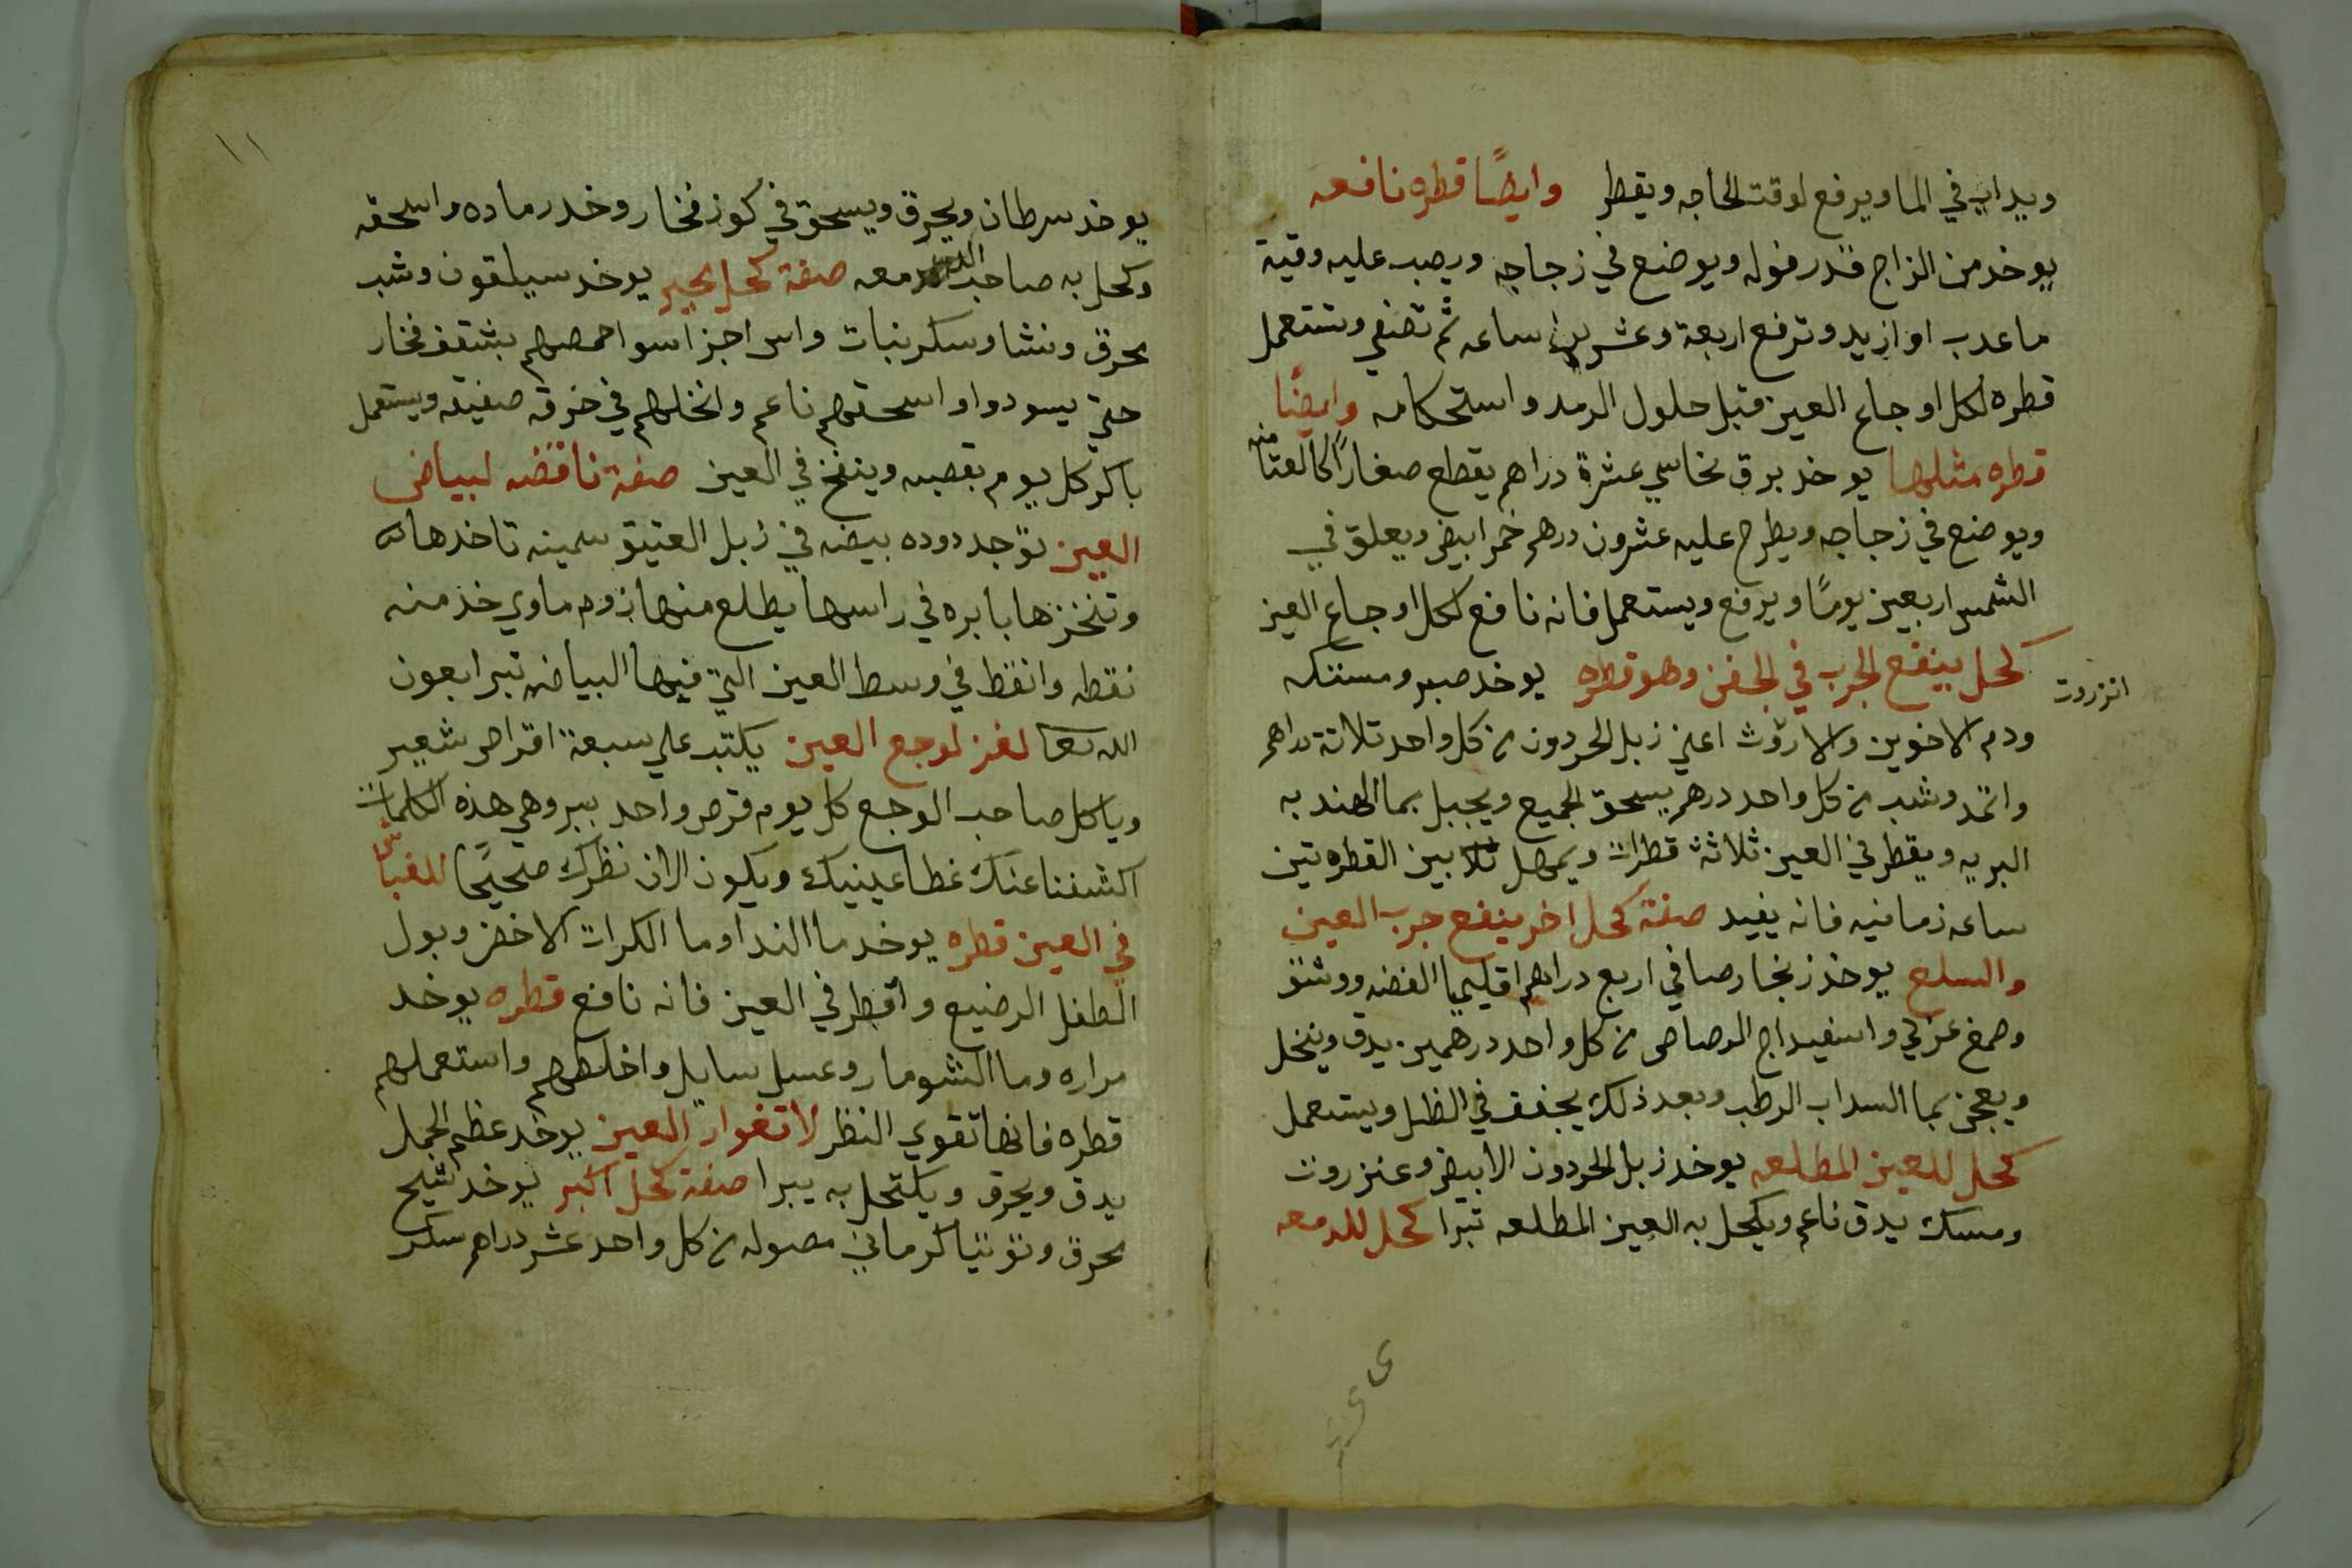 ويداب في الما ويرفع لوقت الحاجه ويقطر وايضًا قطره نافعه
يوخد من الزاج قدر فوله ويوضع في زجاجه ويصب عليه وقية
ما عدب او ازيد وترفع اربعة وعشرين ساعه ثم تصفي وتستعمل
قطره لكل اوجاع العين قبل حلول الرمد واستحكامه وايضًا
قطره مثلها يوخد برق نخاسي عشرة دراهم يقطع صغارًا
ويوضع في زجاجه ويطرح عليه عشرون درهم خمر ابيض ويعلق في
الشمس اربعين يومًا ويرفع ويستعمل فانه نافع لكل اوجاع العين
كحل ينفع الجرب في الجفن وهو قطره يوخد صبر ومستكه
انزروت
ودم الاخوين والاروث اعني زبل الحردون من كل واحد تلاتة دراهم
واتمد وشب من كل واحد درهم يسحق الجميع ويجبل بما الهندبه
البريه ويقطر في العين ثلاثة قطرات ويمهل بين القطره تين
ساعه زمانيه فانه يفيد صفة كحل اخر ينفع جرب العين
والسلع يوخد زنجار صافي اربع دراهم اقليميا الفضه ووشق
وصمغ عربي واسفيداج الرصاص من كل واحد درهمين يدق وينخل
ويعجن بما السداب الرطب وبعد ذلك يجفف في الظل ويستعمل
كحل للعين المطلعه يوخد زبل الحردون الابيض وعنزروت
ومسك يدق ناعم ويكحل به العين المطلعه تبرا كحل للدمعه
١١
يوخد سرطان ويحرق ويسحق في كوز فخار وخد رماده واسحقه
وكحل به صاحب الدمعه صفة كحل يوخد سيلقون وشب
محرق ونشا وسكر نبات واس اجزا سوا حمصهم بشقف فخار
حتي يسودوا واسحقهم ناعم وانخلهم في خرقه صفيقه ويستعمل
باكر كل يوم بقصبه وينفخ في العين صفة نافضه لبياض
العين توجد دوده بيضه في زبل العتيق سمينه تاخدها
وتنخزها بابره في راسها يطلع منها زوم ماوي خد منه
نقطه وانقط في وسط العين التي فيها البياض تبرا بعون
الله تعا لغز لوجع العين يكتب علي سبعة اقراص شعير
وياكل صاحب الوجع كل يوم قرص واحد يبر وهي هذه الكلمات
اكشفنا عنك غطا عينيك ويكون الان نظرك صحيحًا للغباش
في العين قطره يوخد ما الندا وما الكرات الاخضر وبول
الطفل الرضيع واقطر في العين فانه نافع قطره يوخد
مراره وما الشومار وعسل سايل واخلطهم واستعملهم
قطره فانها تقوي النظر لاتغوار العين يوخد عظم الجمل
يدق ويحرق ويكتحل به يبرا صفة كحل اكبر يوخد شيح
محرق وتوتيا كرماني مصوله من كل واحد عشر دراهم سكر